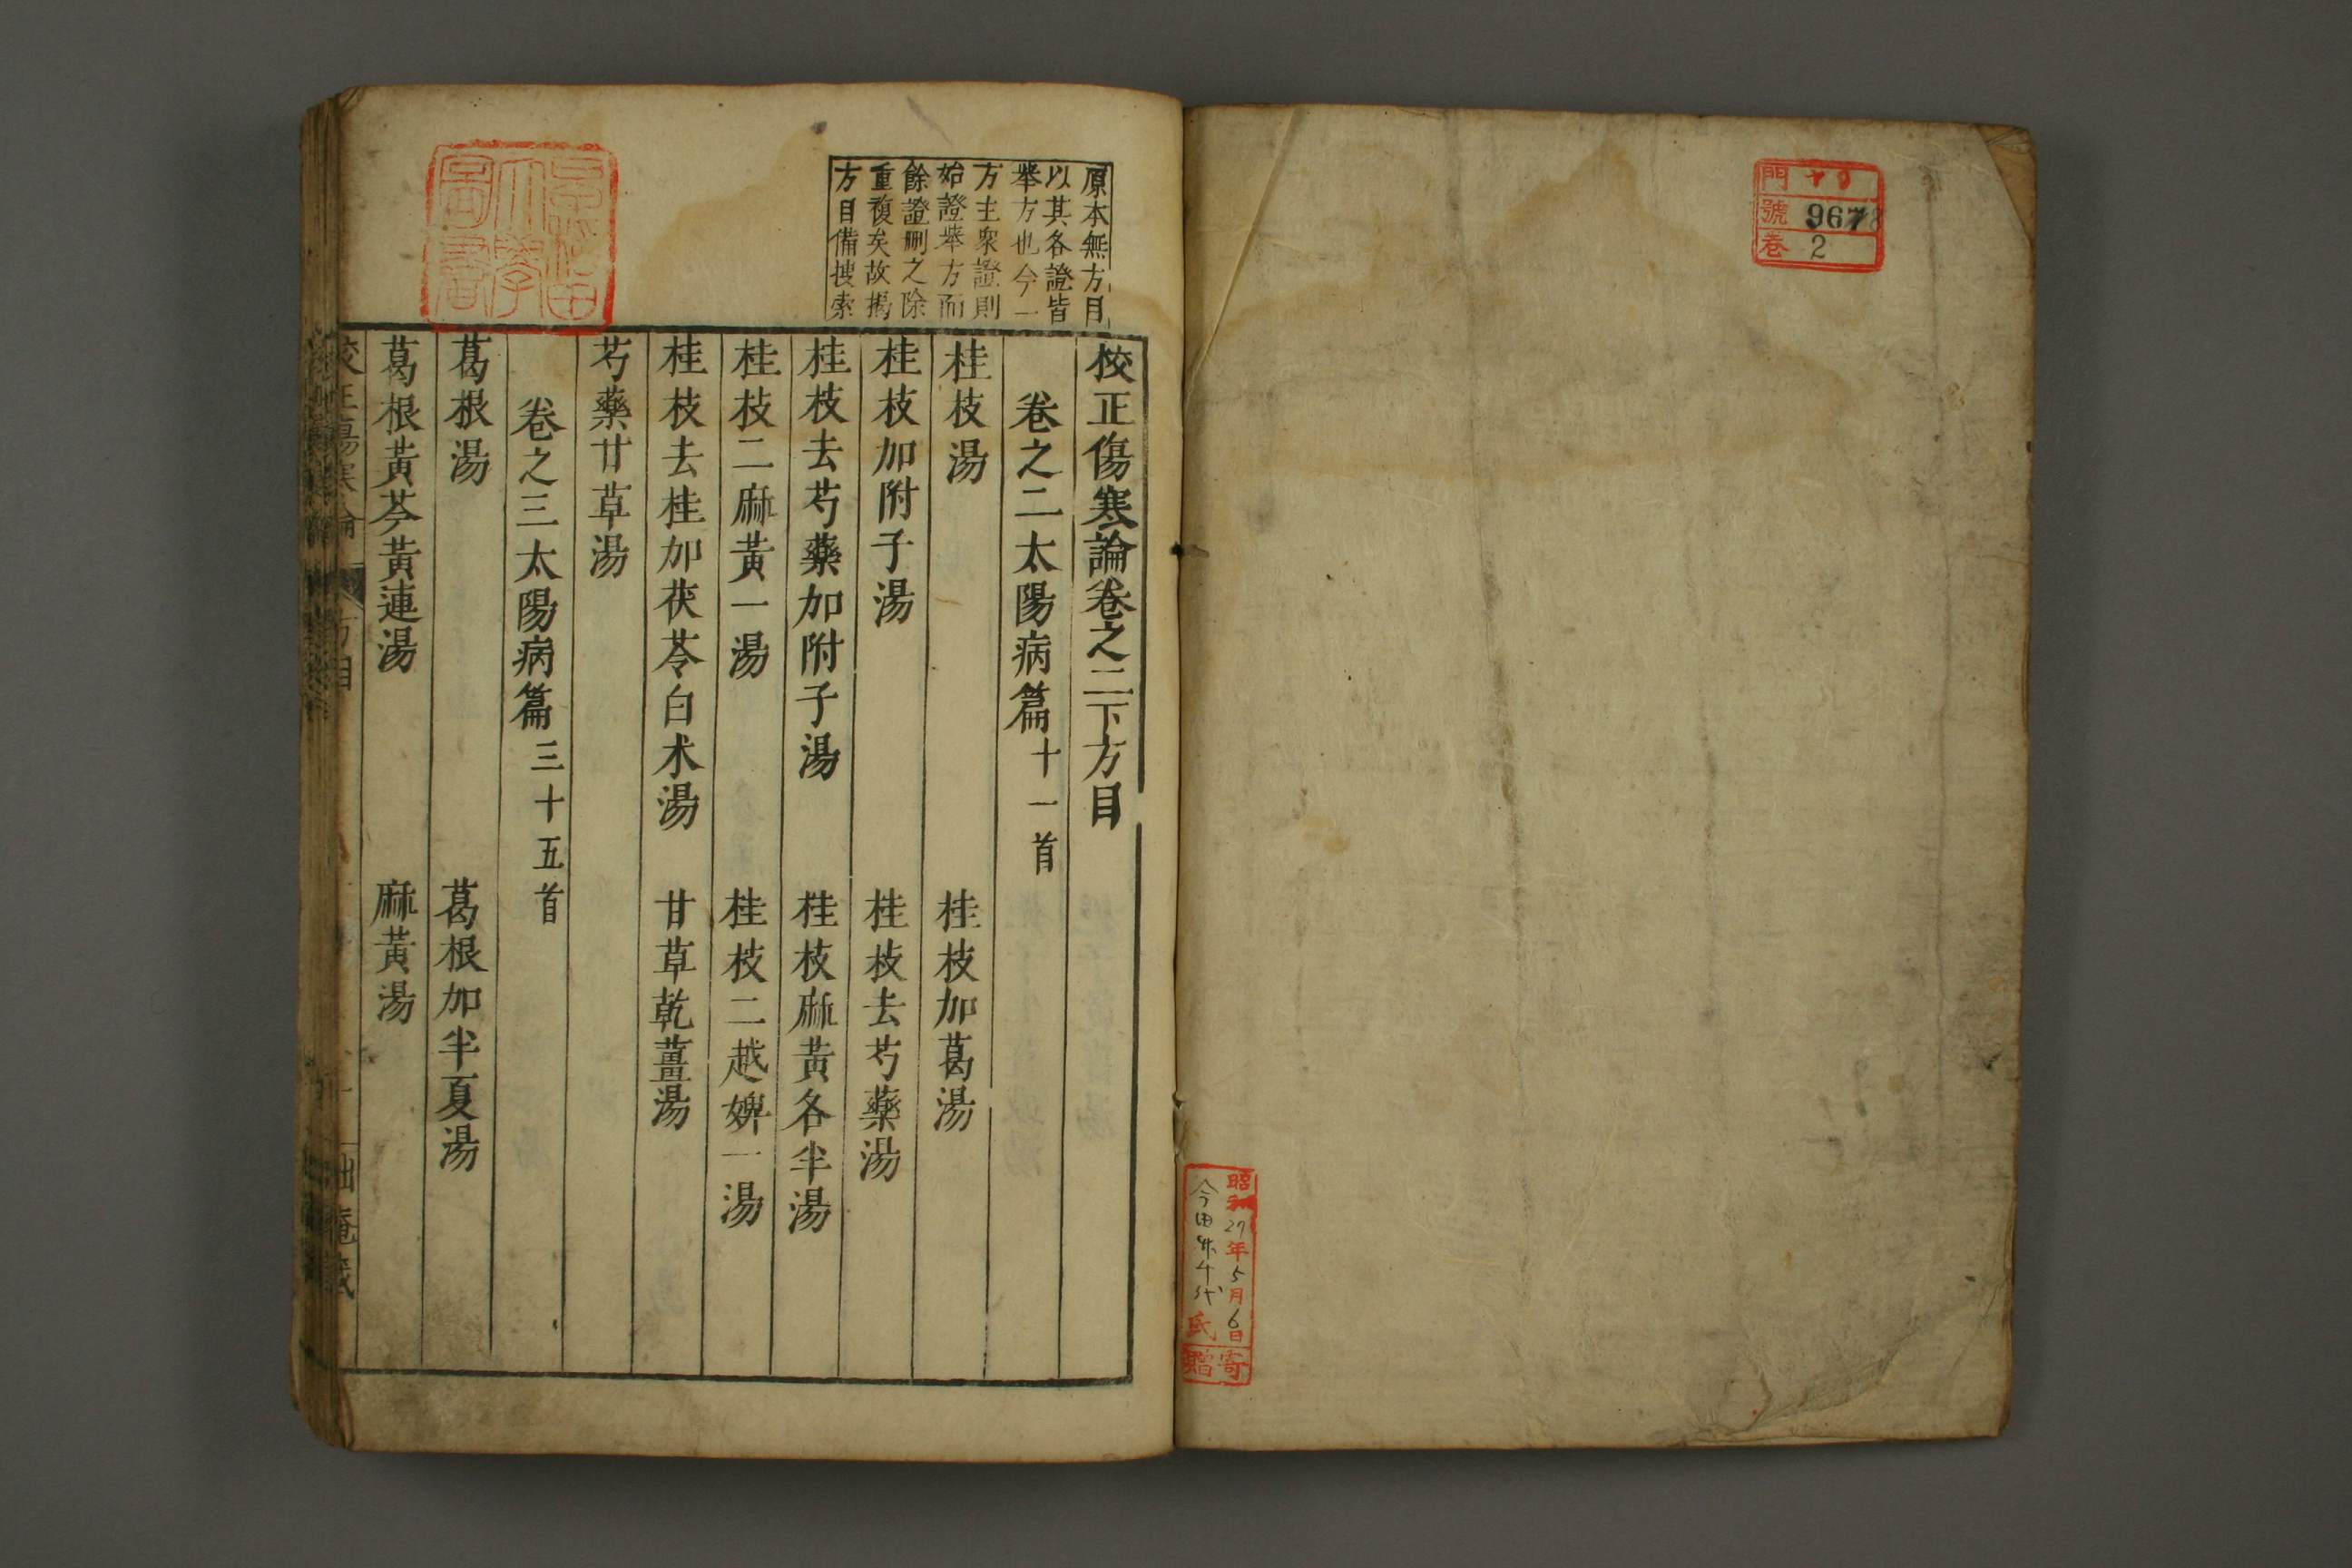 門 十
號 9678
卷 2
昭和27年5月6日
寄贈
原本無方目
以其各證皆
舉方也今一
方主衆證則
始證舉方而
餘證刪之除
重複矣故揭
方目備搜索
校正傷寒論卷之二下方目
卷之二太陽病篇十一首
桂枝湯 桂枝加葛湯
桂枝加附子湯 桂枝去芍藥湯
桂枝去芍藥加附子湯 桂枝麻黃各半湯
桂枝二麻黃一湯 桂枝二越婢一湯
桂枝去桂加茯苓白朮湯 甘草乾薑湯
芍藥甘草湯
卷之三太陽病篇三十五首
葛根湯 葛根加半夏湯
葛根黃芩黃連湯 麻黃湯
方目